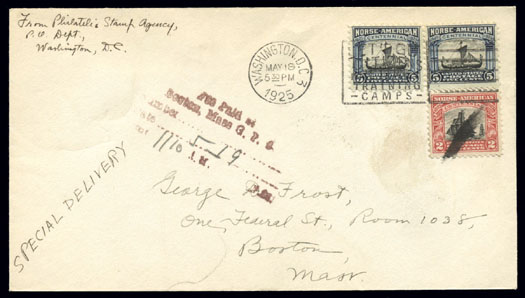 From Philatelic Stamp Agency,
P.O. Dept,
Washington, D.C.
WASHINGTON, D.C. 3
MAY 18
5 PM
1925
TRAINING
CAMPS
NORSE-AMERICAN
CENTENNIAL
5 5
NORSE-AMERICAN
CENTENNIAL
5 5
NORSE-AMERICAN
2 2
Fee Paid at
Boston, Mass G. P. O.
5-19
A.M.
SPECIAL DELIVERY
George Frost,
One Federal St., Room 1038,
Boston,
Mass.